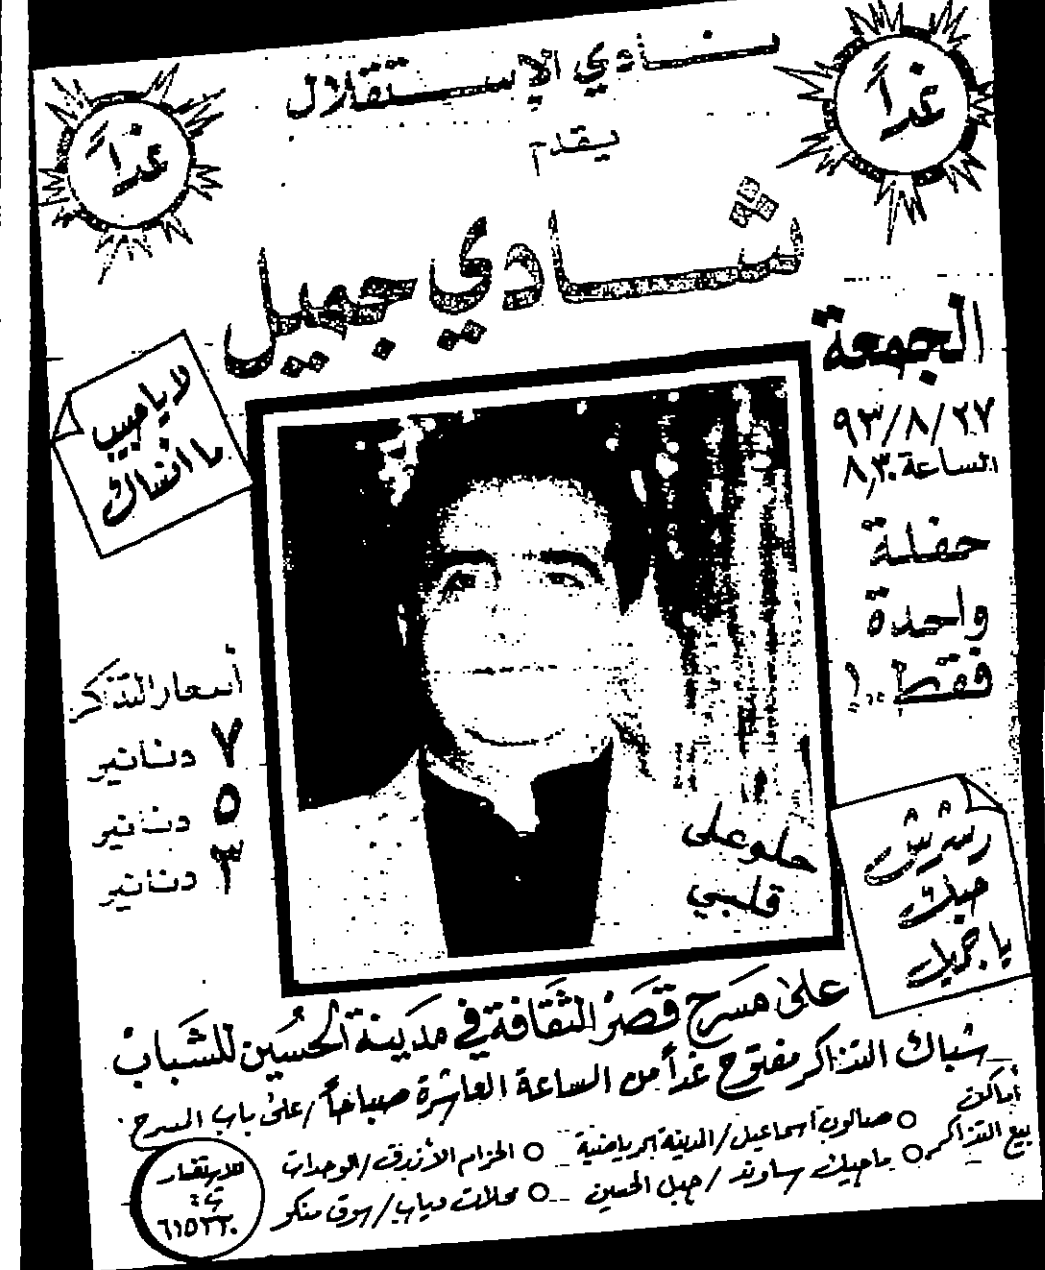 نادي الإستقلال
يقدم
غداً
غداً
شادي جميل
الجمعة
٩٣/٨/٢٧
الساعة ٨,٣٠
حفلة
واحدة
فقط
لا ياحبيب
ما انساك
أسعار التذاكر
٧ دنانير
٥ دنانير
٣ دنانير
حلو على
قلبي
حبك
يا جميل
على مسرح قصر الثقافة في مدينة الحسين للشباب
شباك التذاكر مفتوح غداً من الساعة العاشرة صباحاً / على باب المسرح .
أماكن
بيع التذاكر
صالون اسماعيل / المدينة الرياضية
الحزام الأزرق / الوحدات
ساوند / جبل الحسين
محلات دياب / سوق منكو
للاستفسار
ت :
٦١٥٣٣٠